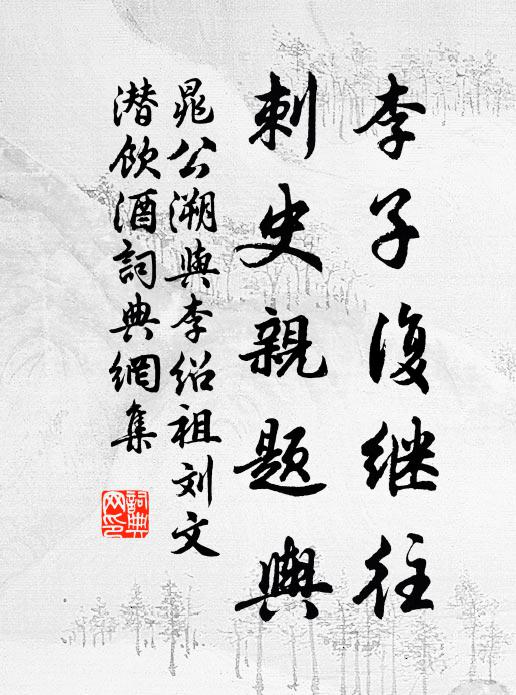 李子復继往
刺史親題輿
晁公溯與李绍祖刘文
潜饮酒詞典網集
詞典网印